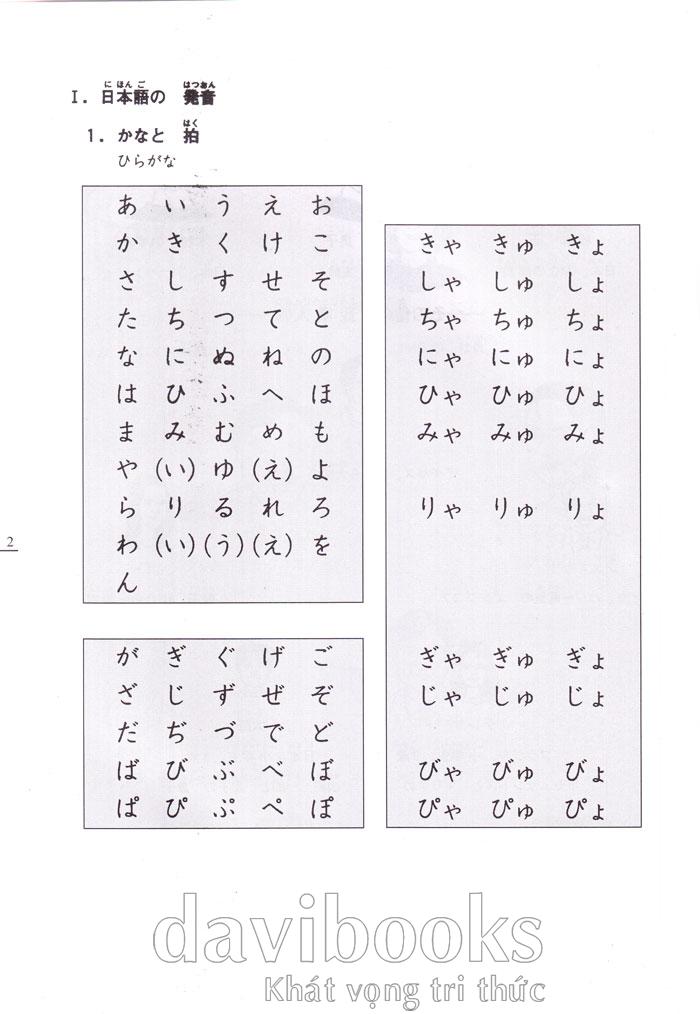 Ⅰ．日本語の　発音
に ほん ご　はつおん
１．かなと　拍
はく
ひらがな
あ い う え お
か き く け こ
さ し す せ そ
た ち つ て と
な に ぬ ね の
は ひ ふ へ ほ
ま み む め も
や (い) ゆ (え) よ
ら り る れ ろ
わ (い) (う) (え) を
ん
きゃ きゅ きょ
しゃ しゅ しょ
ちゃ ちゅ ちょ
にゃ にゅ にょ
ひゃ ひゅ ひょ
みゃ みゅ みょ
りゃ りゅ りょ
2
が ぎ ぐ げ ご
ざ じ ず ぜ ぞ
だ ぢ づ で ど
ば び ぶ べ ぼ
ぱ ぴ ぷ ぺ ぽ
ぎゃ ぎゅ ぎょ
じゃ じゅ じょ
びゃ びゅ びょ
ぴゃ ぴゅ ぴょ
davibooks
Khát vọng tri thức